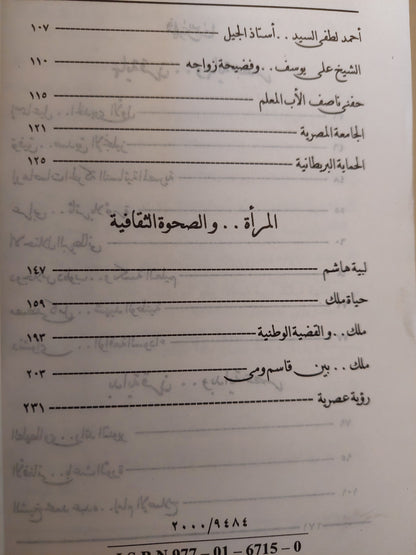 أحمد لطفى السيد . . أستاذ الجيل ١٠٧
الشيخ على يوسف . . وفضيحة زواجه ١١٠
حفنى ناصف الأب المعلم ١١٥
الجامعة المصرية ١٢١
الحماية البريطانية ١٢٥
المرأة . . والصحوة الثقافية
لبية هاشم ١٤٧
حياة ملك ١٥٩
ملك . . والقضية الوطنية ١٩٣
ملك . . بين قاسم ومى ٢٠٣
رؤية عصرية ٢٣١
٢٠٠٠/٩٤٨٤
I.S.B.N 977 – 01 – 6715 – 0